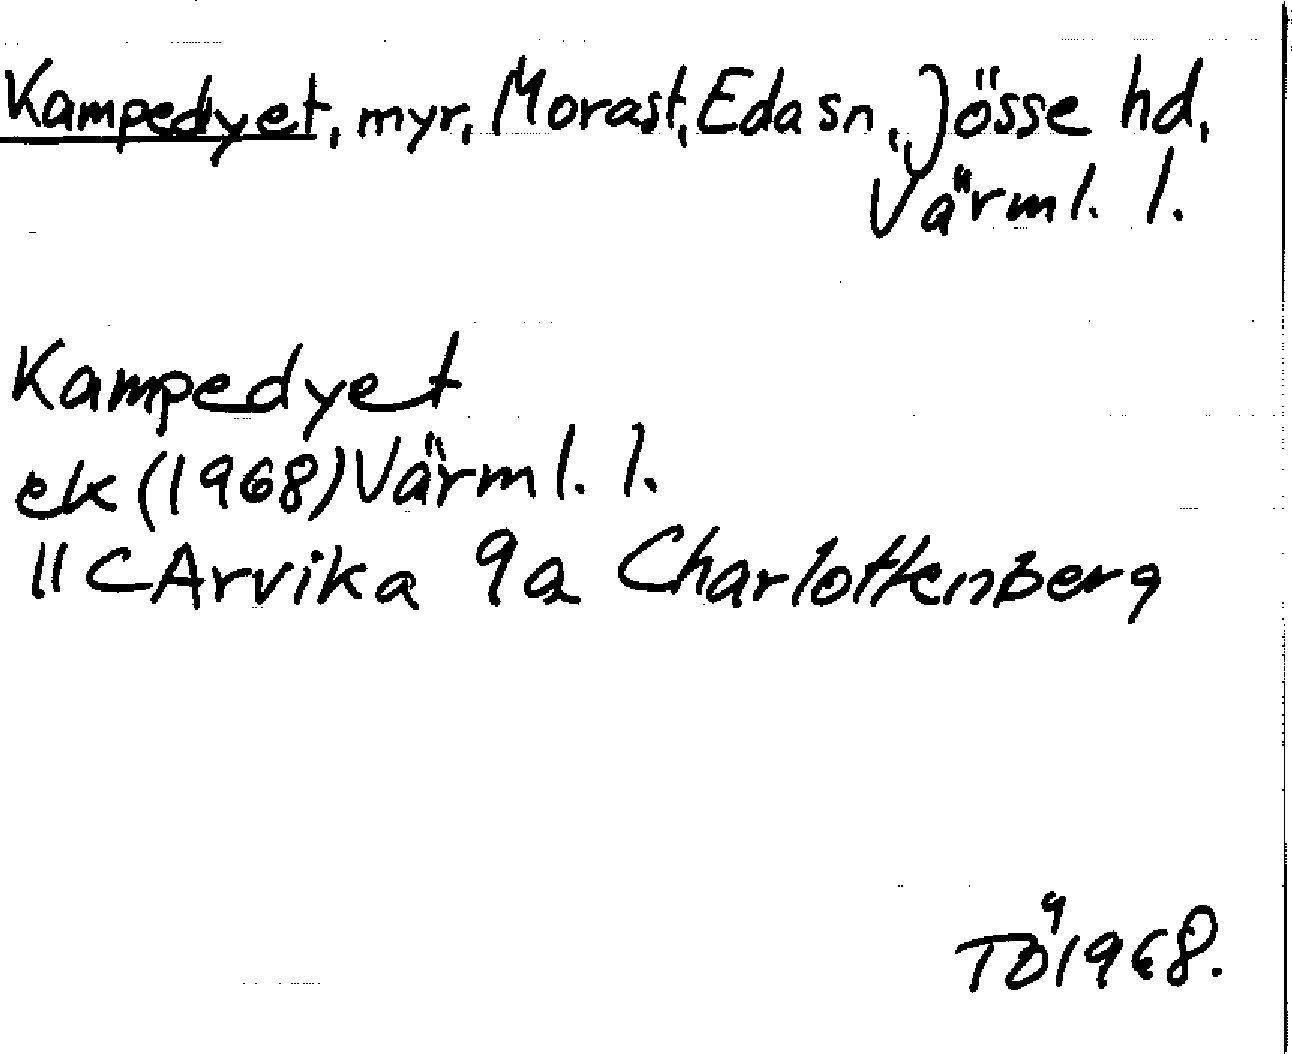 Kampedyet, myr, Morast, Eda sn, Jösse hd,
Värml. l.
Kampedyet
ek (1968) Värml. l.
11 C Arvika 9a Charlottenberg
TÖ 1968.